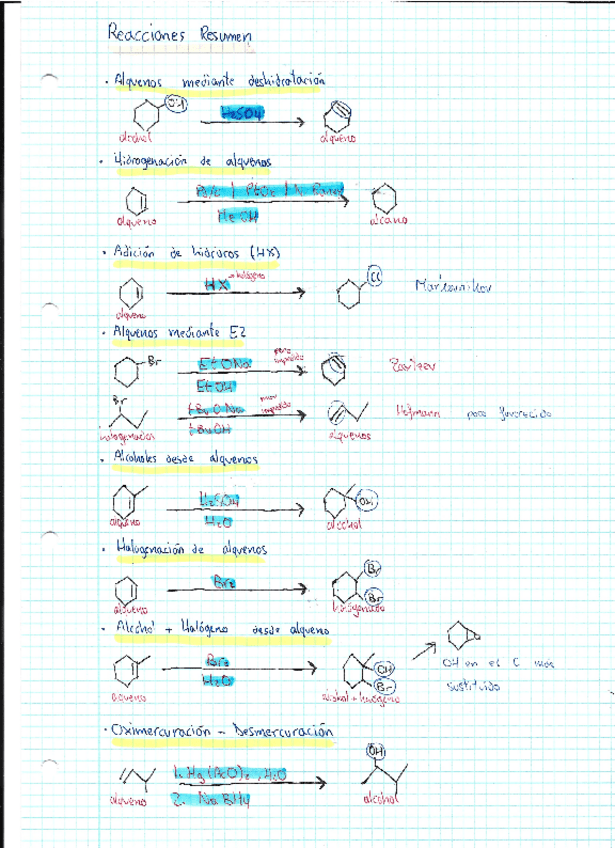 Reacciones Resumen
· Alquenos mediante deshidratación
OH
H2SO4
alcohol
alqueno
· Hidrogenación de alquenos
Pd/C | PtO2 | Ni Raney
MeOH
alqueno
alcano
· Adición de hidruros (HX)
HX → halógeno
Cl
Markovnikov
alqueno
· Alquenos mediante E2
Br
EtONa
poco impedido
EtOH
Zaitzev
Br
tBuONa
muy impedido
tBuOH
Hofmann poco favorecido
halogenados
alquenos
· Alcoholes desde alquenos
H2SO4
H2O
OH
alqueno
alcohol
· Halogenación de alquenos
Br2
Br
Br
alqueno
halogenado
· Alcohol + Halógeno desde alqueno
Br2
H2O
OH
Br
OH en el C más
sustituido
alqueno
alcohol + halógeno
· Oximercuración - Desmercuración
OH
1. Hg(AcO)2, H2O
2. NaBH4
alqueno
alcohol